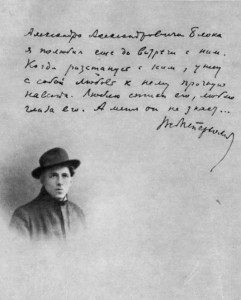 Александра Александровича Блока
я полюбил еще до встречи с ним.
Когда расстанусь с ним, унесу
с собой любовь к нему прочную
навсегда. Люблю стихи его, люблю
глаза его. А меня он не знает...